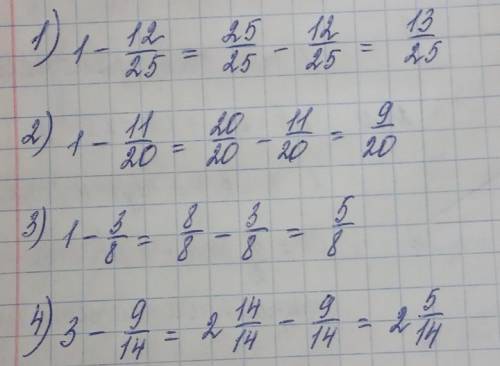 1) 1 - 12/25 = 25/25 - 12/25 = 13/25
2) 1 - 11/20 = 20/20 - 11/20 = 9/20
3) 1 - 3/8 = 8/8 - 3/8 = 5/8
4) 3 - 9/14 = 2 14/14 - 9/14 = 2 5/14